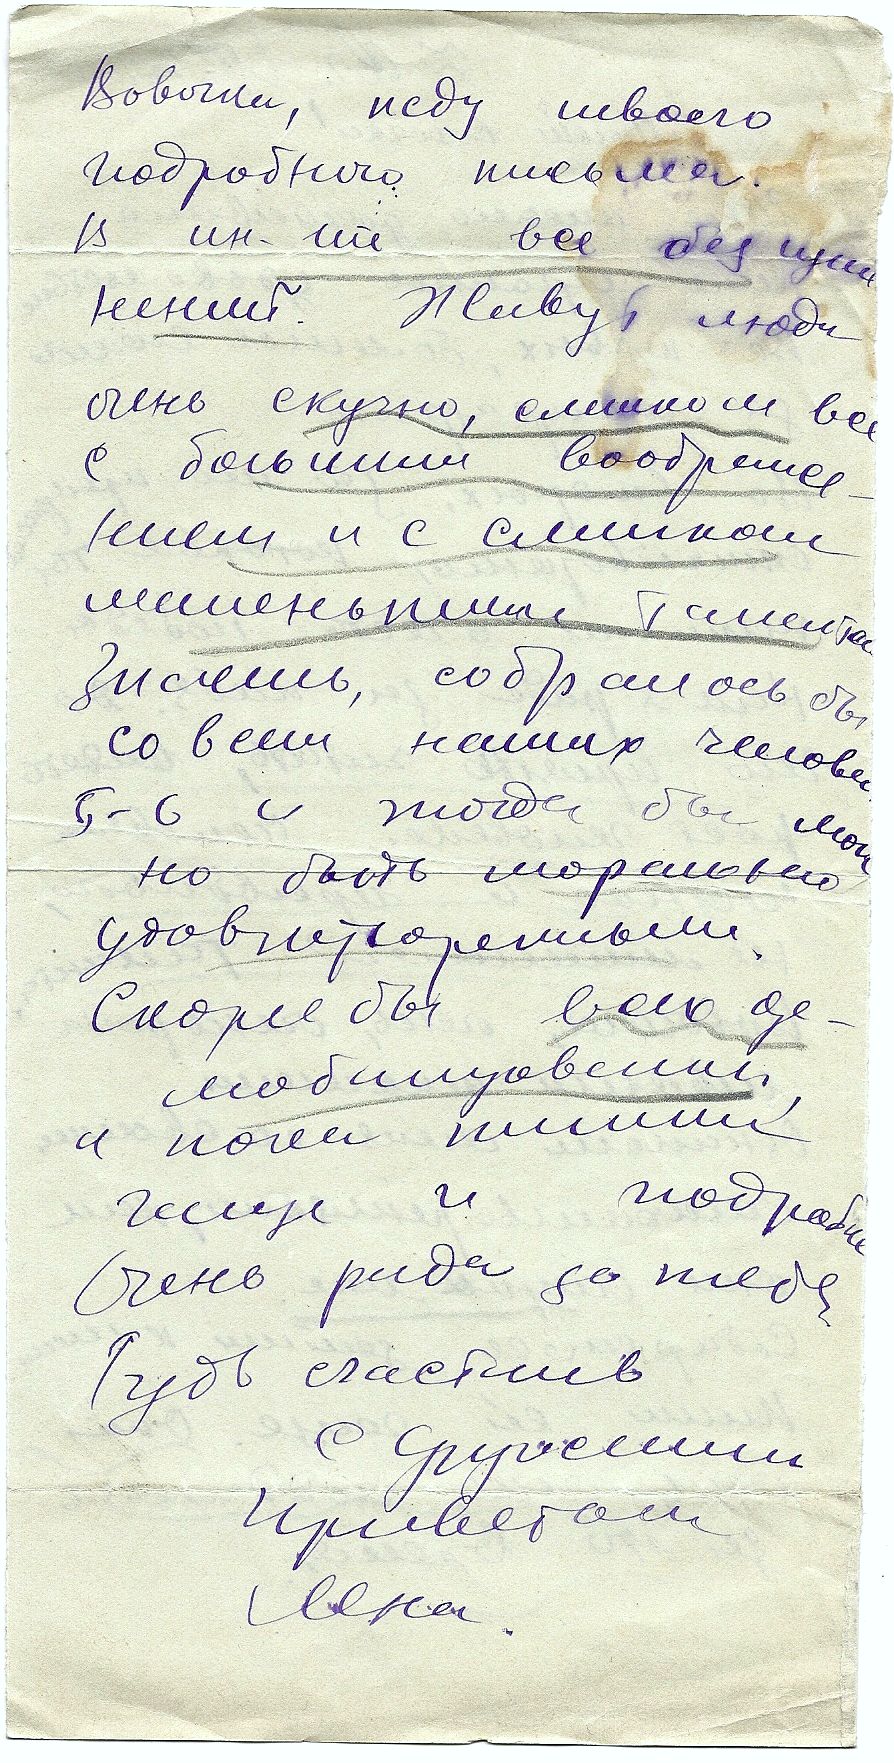 Вовочка, жду твоего
подробного письма.
В ин-те все без изме
нений. Живут люди
очень скучно, слишком все
с большим воображе-
нием и с слишком
маленькими талантам
Знаешь, собралось бы
со всем наших человек
5-6 и тогда бы мож
но быть морально
удовлетворенными.
Скорее бы всею де-
мобилизовали,
а пока пиши
чаще и подробне
Очень рада за тебя.
Будь счастлив
С дружеским
Приветом
Лена.